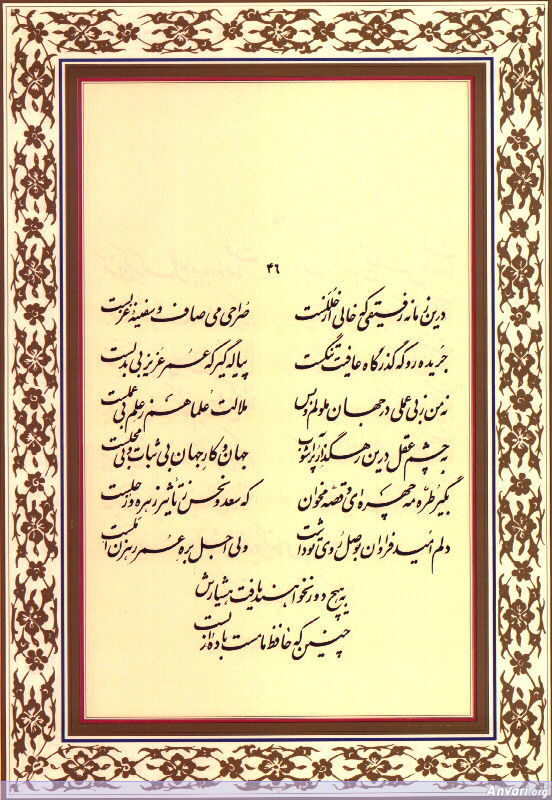 ۴۶
درین زمانه رفیقی که خالی از خللست صراحی می صاف و سفینه غزلست
جریده رو که گذرگاه عافیت تنگست پیاله گیر که عمر عزیز بی بدلست
نه من ز بی عملی در جهان ملولم و بس ملالت علما هم ز علم بی عملست
به چشم عقل درین رهگذار پرآشوب جهان و کار جهان بی ثبات و بی محلست
بگیر طره مه چهره ای و قصه مخوان که سعد و نحس ز تأثیر زهره و زحلست
دلم امید فراوان بوصل روی تو داشت ولی اجل بره عمر رهزن املست
به هیچ دور نخواهند یافت هشیارش
چنین که حافظ ما مست باده ازلست
Anvari.org